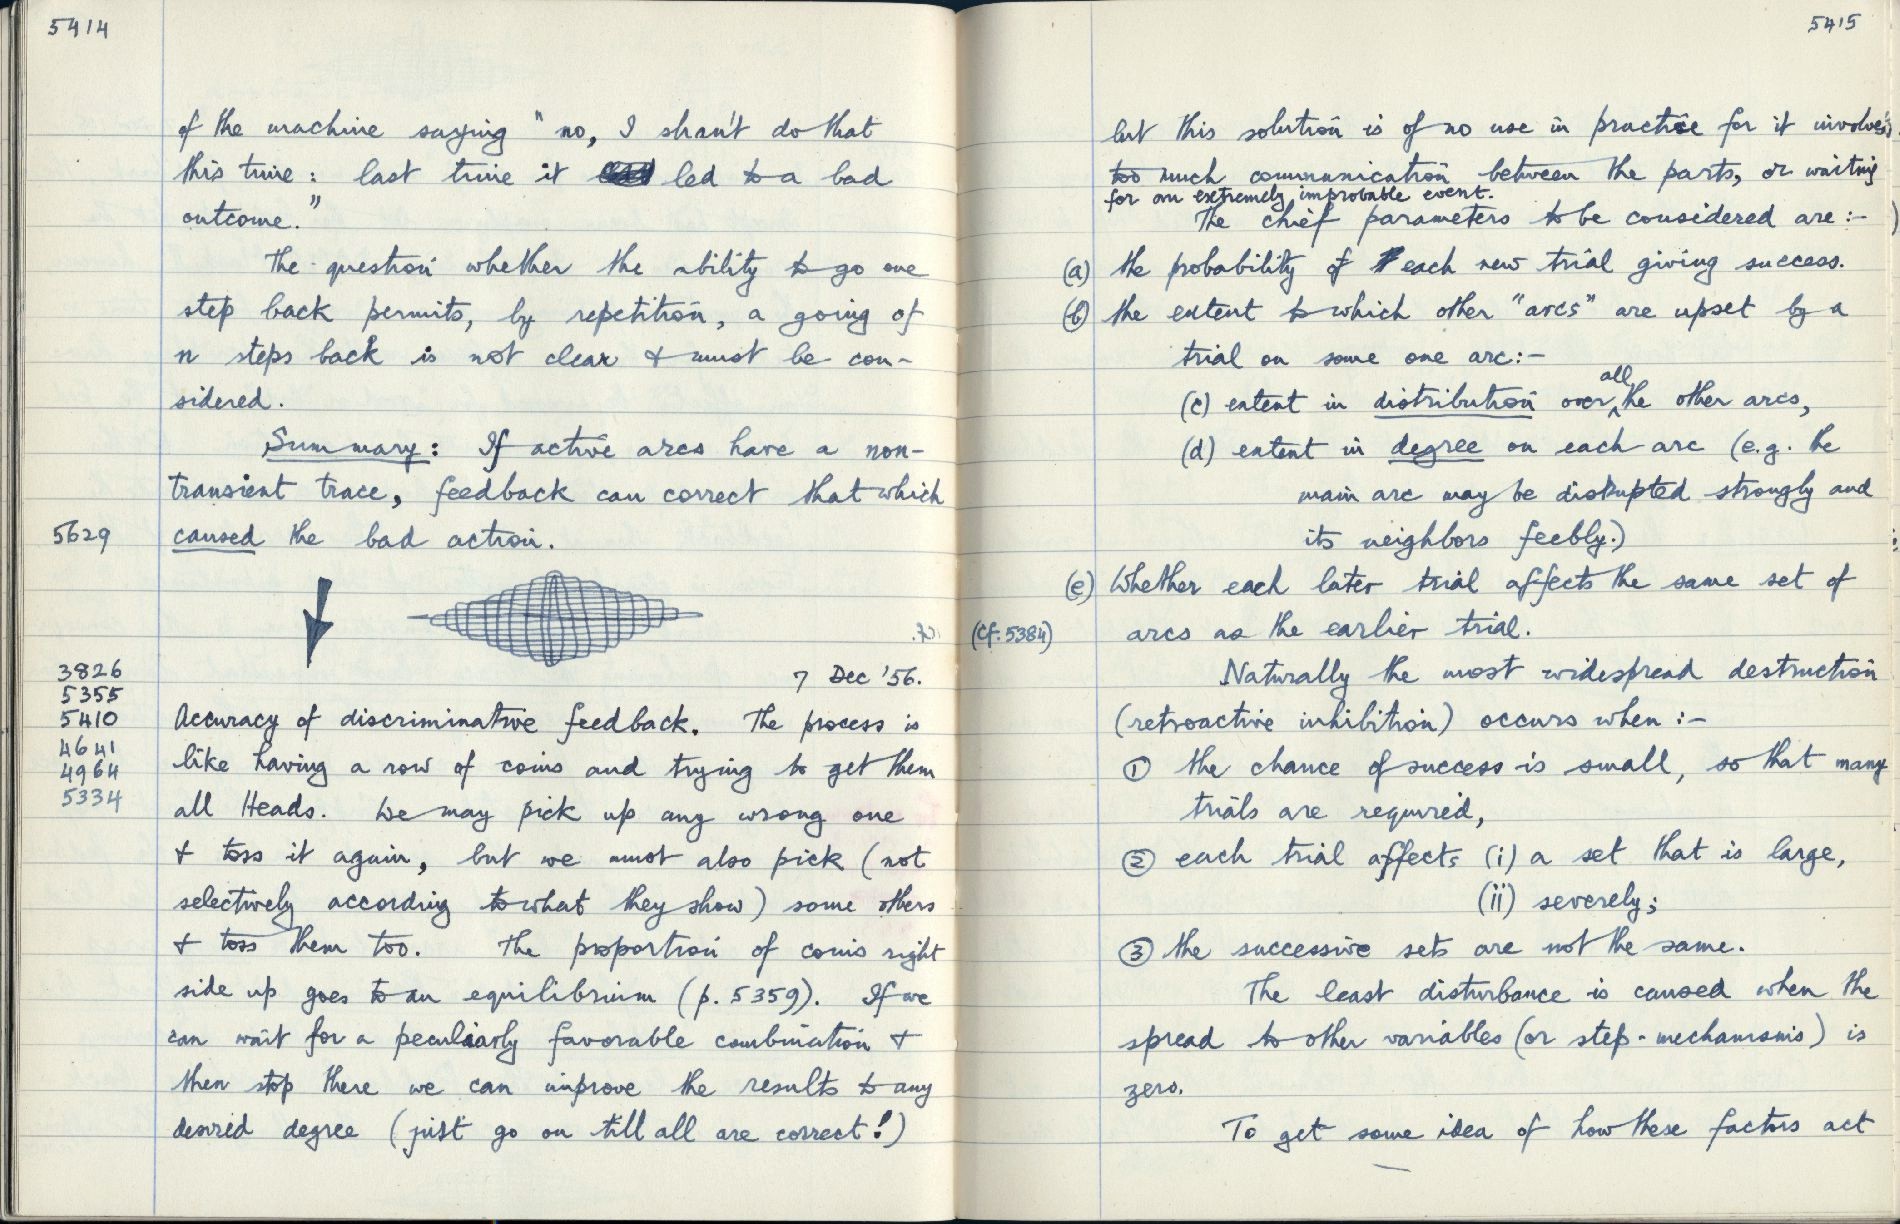 5414
of the machine saying "no, I shan't do that
this time: last time it led to a bad
outcome."
The question whether the ability to go one
step back permits, by repetition, a going of
n steps back is not clear & must be con-
sidered.
Summary: If active arcs have a non-
transient trace, feedback can correct that which
5629
caused the bad action.
7 Dec '56.
3826
5355
5410
4641
4964
5334
Accuracy of discriminative feedback. The process is
like having a row of coins and trying to get them
all Heads. We may pick up any wrong one
& toss it again, but we must also pick (not
selectively according to what they show) some others
& toss them too. The proportion of coins right
side up goes to an equilibrium (p. 5359). If we
can wait for a peculiarly favorable combination &
then stop there we can improve the results to any
desired degree (just go on till all are correct!)
5415
but this solution is of no use in practice for it involves
too much communication between the parts, or waiting
for an extremely improbable event.
The chief parameters to be considered are :-
(a) the probability of each new trial giving success.
(b) the extent to which other "arcs" are upset by a
trial on some one arc:-
(c) extent in distribution over all the other arcs,
(d) extent in degree on each arc (e.g. the
main arc may be disrupted strongly and
its neighbors feebly.)
(e) Whether each later trial affects the same set of
(cf. 5384)
arcs as the earlier trial.
Naturally the most widespread destruction
(retroactive inhibition) occurs when :-
① the chance of success is small, so that many
trials are required,
② each trial affects (i) a set that is large,
(ii) severely;
③ the successive sets are not the same.
The least disturbance is caused when the
spread to other variables (or step-mechanisms) is
zero.
To get some idea of how these factors act